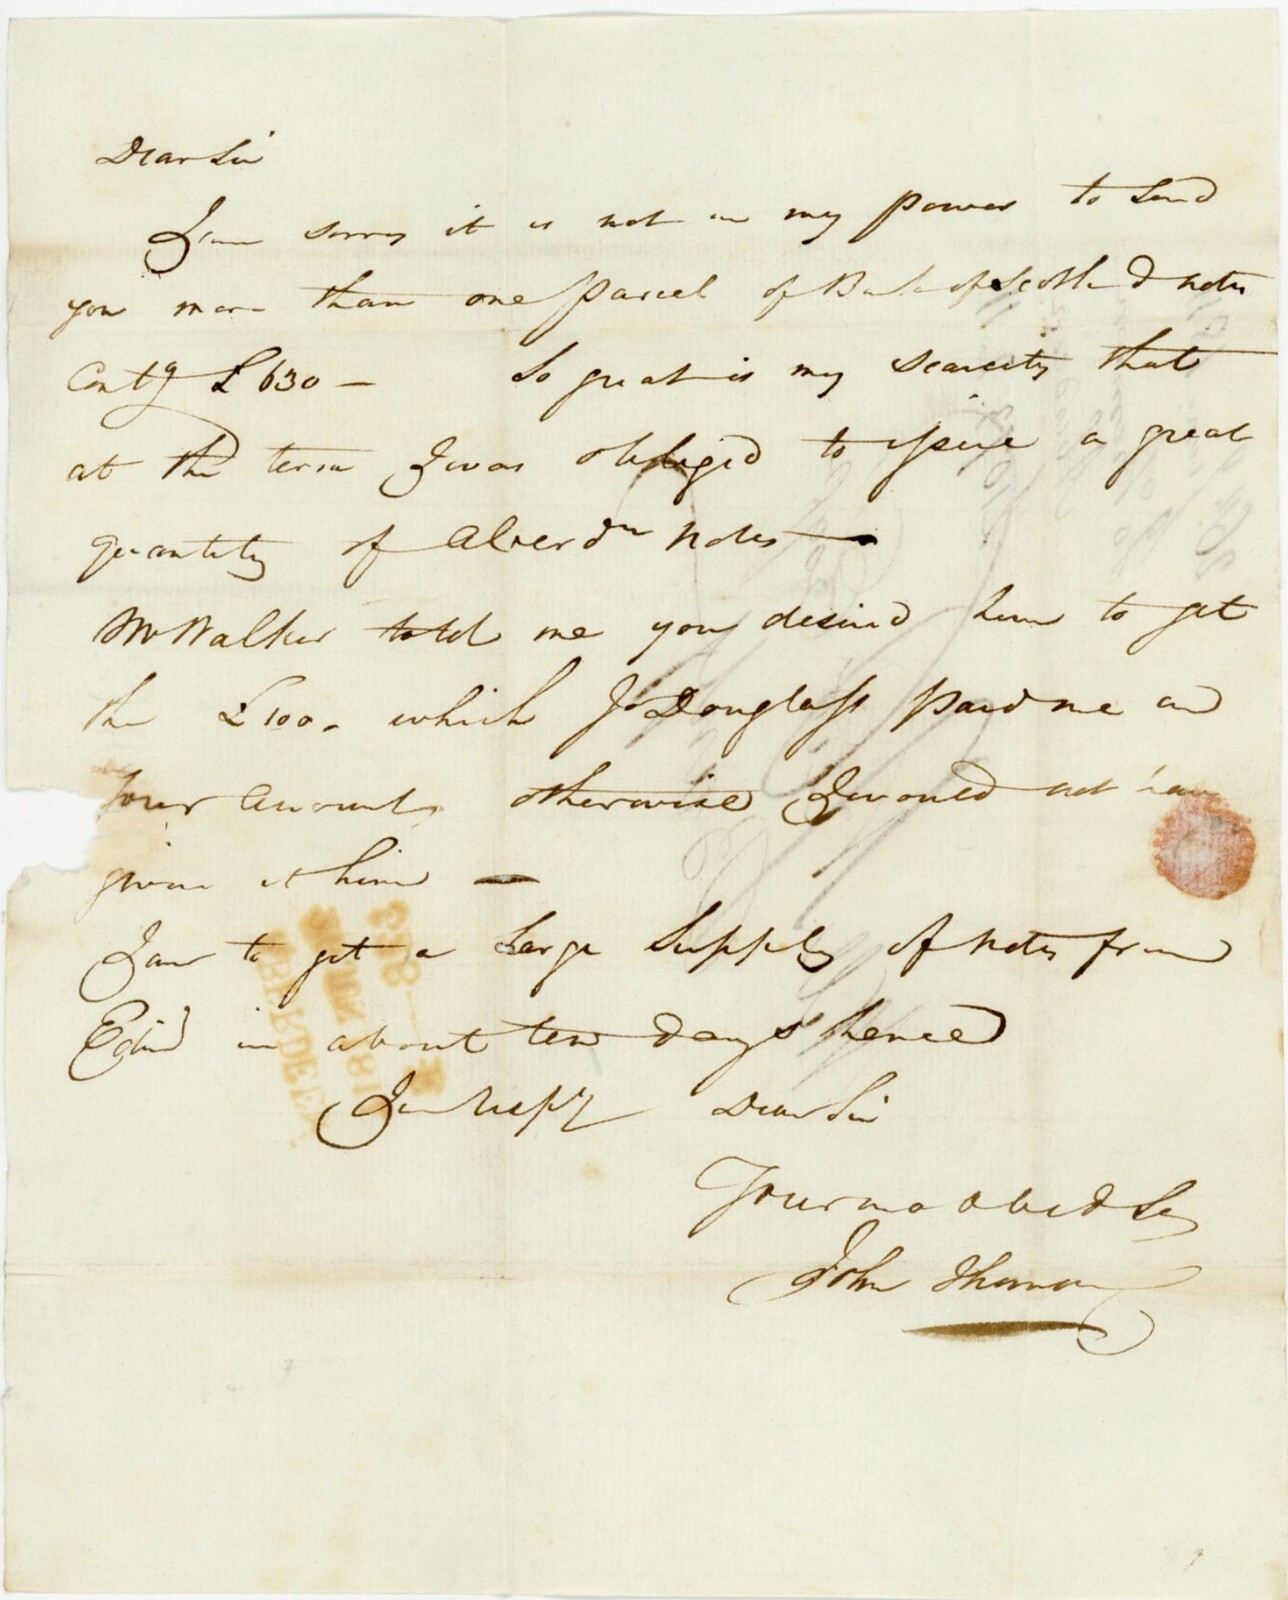 Dear Sir
I am sorry it is not in my power to send
you more than one parcel of Bank of Scotland notes
Contg £630 — So great is my scarcity that
at the term I was obliged to issue a great
quantity of Aberdn notes —
Mr Walker told me you desired him to get
the £100. which Jo Douglass paid me on
your account, otherwise I would not have
given it him —
I am to get a large supply of notes from
Edinr in about ten days hence
I am respy Dear Sir
Your mo obed Se
John Thomson
ABERDEEN